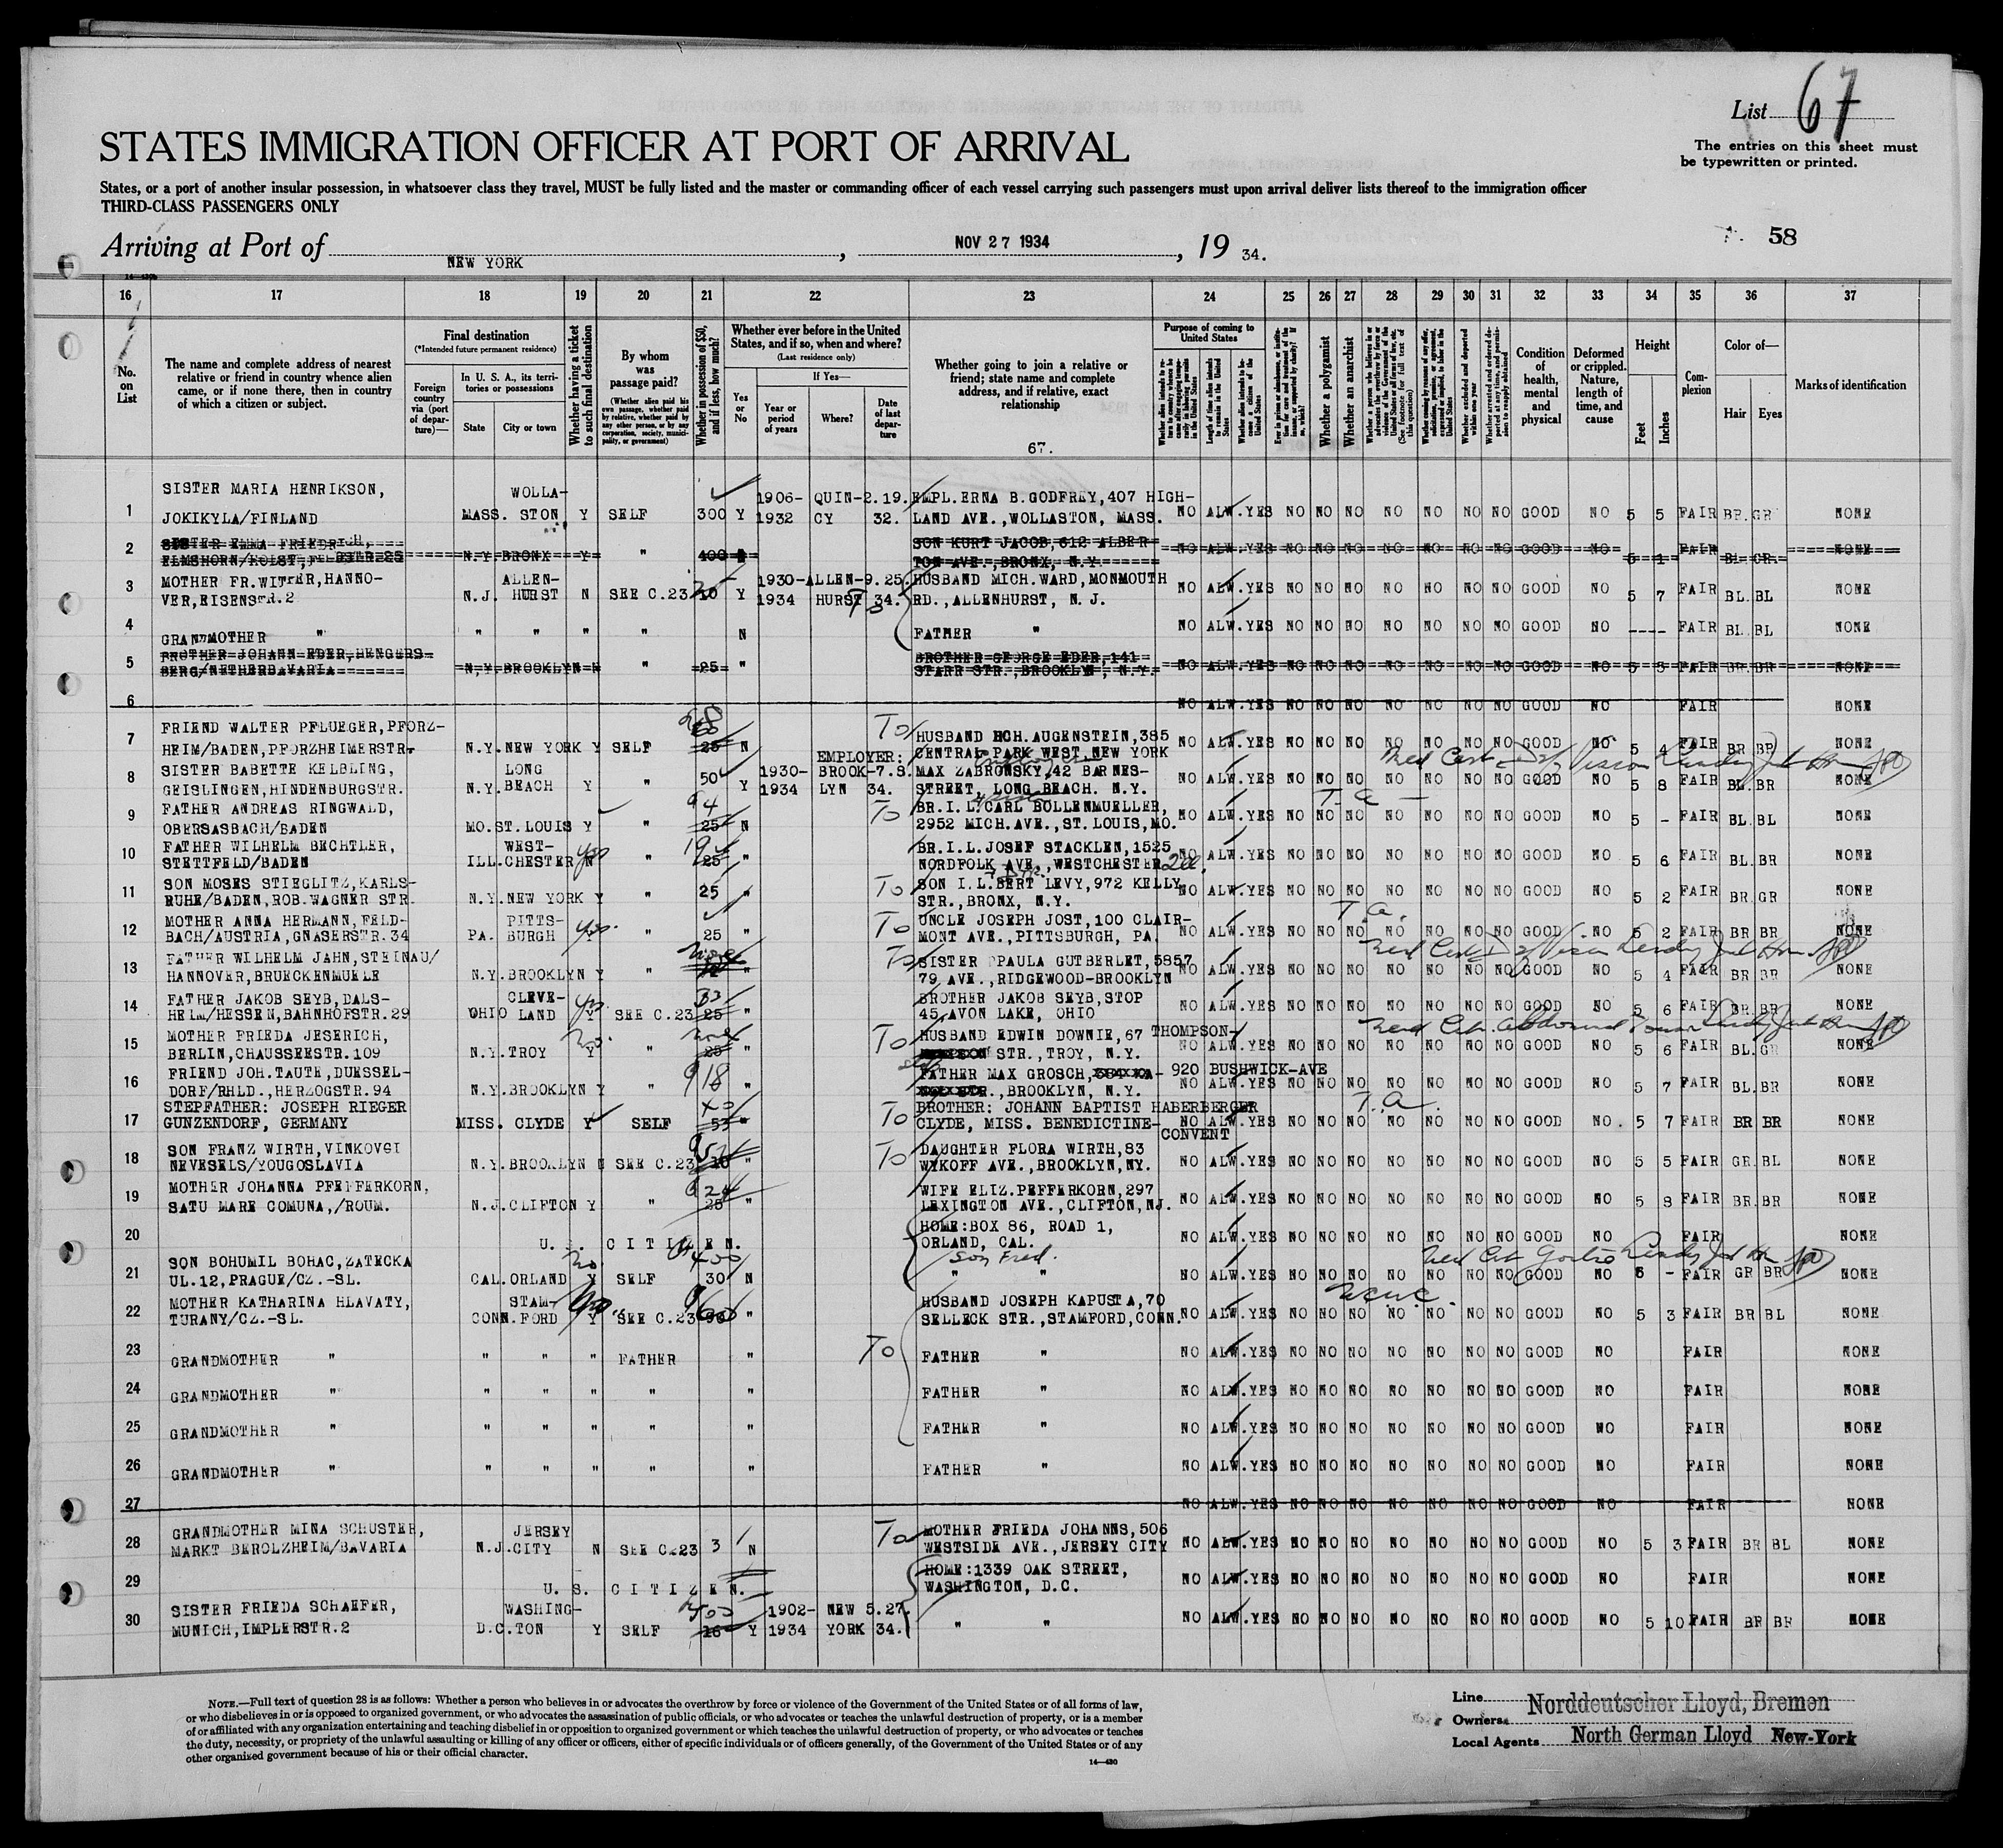 List 67
STATES IMMIGRATION OFFICER AT PORT OF ARRIVAL
The entries on this sheet must
be typewritten or printed.
States, or a port of another insular possession, in whatsoever class they travel, MUST be fully listed and the master or commanding officer of each vessel carrying such passengers must upon arrival deliver lists thereof to the immigration officer
THIRD-CLASS PASSENGERS ONLY
Arriving at Port of NEW YORK, NOV 27 1934, 19 34.
58
16 17 18 19 20 21 22 23 24 25 26 27 28 29 30 31 32 33 34 35 36 37
No. on List
The name and complete address of nearest relative or friend in country whence alien came, or if none there, then in country of which a citizen or subject.
Final destination
(*Intended future permanent residence)
Foreign country via (port of departure)—
In U. S. A., its territories or possessions
State
City or town
Whether having a ticket to such final destination
By whom was passage paid?
(Whether alien paid his own passage, whether paid by relative, whether paid by any other person, or by any corporation, society, municipality, or government)
Whether in possession of $50, and if less, how much?
Whether ever before in the United States, and if so, when and where?
(Last residence only)
If Yes—
Yes or No
Year or period of years
Where?
Date of last departure
Whether going to join a relative or friend; state name and complete address, and if relative, exact relationship
67.
Purpose of coming to United States
Whether a polygamist
Whether an anarchist
Condition of health, mental and physical
Deformed or crippled. Nature, length of time, and cause
Height
Feet
Inches
Complexion
Color of—
Hair
Eyes
Marks of identification
1 SISTER MARIA HENRIKSON, WOLLA- 1906- QUIN- 2.19. EMPL.ERNA B.GODFREY,407 HIGH-
JOKIKYLA/FINLAND MASS. STON Y SELF 300 Y 1932 CY 32. LAND AVE.,WOLLASTON, MASS. NO ALW. YES NO NO NO NO NO NO NO GOOD NO 5 5 FAIR BR. GR NONE
2 SISTER EMMA FRIEDRICH, SON KURT JACOB,612 ALBER
ELMSHORN/HOLST, N.Y. BRONX Y " 400 TON AVE.,BRONX, N.Y. NO ALW. YES NO NO NO NO NO NO NO GOOD NO 5 1 FAIR BL GR. NONE
3 MOTHER FR.WITTER,HANNO- ALLEN- 1930- ALLEN- 9.25. HUSBAND MICH.WARD,MONMOUTH
VER,EISENSTR.2 N.J. HURST N SEE C.23 10 Y 1934 HURST 34. RD.,ALLENHURST, N. J. NO ALW. YES NO NO NO NO NO NO NO GOOD NO 5 7 FAIR BL. BL NONE
4 GRANDMOTHER " " " " " N FATHER " NO ALW. YES NO NO NO NO NO NO NO GOOD NO ---- FAIR BL BL NONE
5 BROTHER JOHANN EDER,HENGERS- BROTHER GEORGE EDER,141
BERG/NETHERBAVARIA N.Y. BROOKLYN N " 25 " STARR STR.,BROOKLYN, N.Y. NO ALW. YES NO NO NO NO NO NO NO GOOD NO 5 5 FAIR BR. BR NONE
6 NO ALW. YES NO NO NO NO NO NO NO GOOD NO FAIR NONE
7 FRIEND WALTER PFLUEGER,PFORZ- To HUSBAND HCH.AUGENSTEIN,385
HEIM/BADEN,PFORZHEIMERSTR. N.Y. NEW YORK Y SELF 25 N CENTRAL PARK WEST NEW YORK NO ALW. YES NO NO NO NO NO NO NO GOOD NO 5 4 FAIR BR BR NONE
8 SISTER BABETTE KELBLING, LONG EMPLOYER: 1930- BROOK- 7.S. MAX ZABROWSKY,42 BARNES-
GEISLINGEN,HINDENBURGSTR. N.Y. BEACH Y " 50 Y 1934 LYN 34. STREET, LONG BEACH. N.Y. NO ALW. YES NO NO NO NO NO NO NO GOOD NO 5 8 FAIR BL. BR NONE
9 FATHER ANDREAS RINGWALD, To BR.I.L.CARL BOLLENMUELLER, T.a
OBERSASBACH/BADEN MO. ST.LOUIS Y " 25 N 2952 MICH.AVE.,ST.LOUIS,MO. NO ALW. YES NO NO NO NO NO NO NO GOOD NO 5 - FAIR BL. BL NONE
10 FATHER WILHELM BECHTLER, WEST- BR.I.L.JOSEF STACKLEN,1525
STETTFELD/BADEN ILL. CHESTER N yes " 25 " NORDFOLK AVE.,WESTCHESTER NO ALW. YES NO NO NO NO NO NO NO GOOD NO 5 6 FAIR BL. BR NONE
11 SON MOSES STIEGLITZ,KARLS- To SON I.L.BERT LEVY,972 KELLY
RUHE/BADEN,ROB.WAGNER STR. N.Y. NEW YORK Y " 25 " STR.,BRONX, N.Y. NO ALW. YES NO NO NO NO NO NO NO GOOD NO 5 2 FAIR BR. GR NONE
12 MOTHER ANNA HERMANN,FELD- PITTS- To UNCLE JOSEPH JOST,100 CLAIR- T.a.
BACH/AUSTRIA,GNASERSTR.34 PA. BURGH Y yes " 25 " MONT AVE.,PITTSBURGH, PA. NO ALW. YES NO NO NO NO NO NO NO GOOD NO 5 2 FAIR BR BR NONE
13 FATHER WILHELM JAHN,STEINAU/ To SISTER PAULA GUTBERLET,5857
HANNOVER,BRUECKENMUELE N.Y. BROOKLYN Y " " 79 AVE.,RIDGEWOOD-BROOKLYN NO ALW. YES NO NO NO NO NO NO NO GOOD NO 5 4 FAIR BR BR NONE
14 FATHER JAKOB SEYB,DALS- CLEVE- BROTHER JAKOB SEYB,STOP
HEIM/HESSEN,BAHNHOFSTR.29 OHIO LAND Y yes SEE C.23 25 " 45,AVON LAKE, OHIO NO ALW. YES NO NO NO NO NO NO NO GOOD NO 5 6 FAIR BR. BR NONE
15 MOTHER FRIEDA JESERICH, To HUSBAND EDWIN DOWNIE,67 THOMPSON-
BERLIN,CHAUSSEESTR.109 N.Y. TROY Y no. " 25 " STR.,TROY, N.Y. NO ALW. YES NO NO NO NO NO NO NO GOOD NO 5 6 FAIR BL. GR NONE
16 FRIEND JOH.TAUTE,DUESSEL- FATHER MAX GROSCH, 920 BUSHWICK-AVE
DORF/RHLD.,HERZOGSTR.94 N.Y. BROOKLYN Y " 18 " BROOKLYN, N.Y. NO ALW. YES NO NO NO NO NO NO NO GOOD NO 5 7 FAIR BL. BR NONE
17 STEPFATHER: JOSEPH RIEGER To BROTHER: JOHANN BAPTIST HABERBERGER T.a.
GUNZENDORF, GERMANY MISS. CLYDE Y SELF 53 " CLYDE, MISS. BENEDICTINE-CONVENT NO ALW. YES NO NO NO NO NO NO NO GOOD NO. 5 7 FAIR BR BR NONE
18 SON FRANZ WIRTH,VINKOVGI To DAUGHTER FLORA WIRTH,83
NEVESELS/YOUGOSLAVIA N.Y. BROOKLYN N SEE C.23 " WYKOFF AVE.,BROOKLYN,NY. NO ALW. YES NO NO NO NO NO NO NO GOOD NO 5 5 FAIR GR. BL NONE
19 MOTHER JOHANNA PFEFFERKORN, WIFE ELIZ.PEFFERKORN,297
SATU MARE COMUNA,/ROUM. N.J. CLIFTON Y " 25 " LEXINGTON AVE.,CLIFTON,NJ. NO ALW. YES NO NO NO NO NO NO NO GOOD NO 5 8 FAIR BR. BR NONE
20 U. S. CITIZEN. HOME:BOX 86, ROAD 1,
ORLAND, CAL. NO ALW. YES NO NO NO NO NO NO NO GOOD NO FAIR NONE
21 SON BOHUMIL BOHAC,ZATECKA no. 400 Son Fred.
UL.12,PRAGUE/CZ.-SL. CAL. ORLAND Y SELF 30 N " " NO ALW. YES NO NO NO NO NO NO NO GOOD NO 5 - FAIR GR BR NONE
22 MOTHER KATHARINA HLAVATY, STAM- HUSBAND JOSEPH KAPUSTA,70
TURANY/CZ.-SL. CONN. FORD Y SEE C.23 60 " SELLECK STR.,STAMFORD,CONN. NO ALW. YES NO NO NO NO NO NO NO GOOD NO 5 3 FAIR BR BL NONE
23 GRANDMOTHER " " " " FATHER " To FATHER " NO ALW. YES NO NO NO NO NO NO NO GOOD NO FAIR NONE
24 GRANDMOTHER " " " " " " FATHER " NO ALW. YES NO NO NO NO NO NO NO GOOD NO FAIR NONE
25 GRANDMOTHER " " " " " " FATHER " NO ALW. YES NO NO NO NO NO NO NO GOOD NO FAIR NONE
26 GRANDMOTHER " " " " " " FATHER " NO ALW. YES NO NO NO NO NO NO NO GOOD NO FAIR NONE
27 NO ALW. YES NO NO NO NO NO NO NO GOOD NO FAIR NONE
28 GRANDMOTHER MINA SCHUSTER, JERSEY To MOTHER FRIEDA JOHANNS,506
MARKT BEROLZHEIM/BAVARIA N.J. CITY N SEE C.23 3 N WESTSIDE AVE.,JERSEY CITY NO ALW. YES NO NO NO NO NO NO NO GOOD NO 5 3 FAIR BR BL NONE
29 U. S. CITIZEN. HOME:1339 OAK STREET,
WASHINGTON, D.C. NO ALW. YES NO NO NO NO NO NO NO GOOD NO FAIR NONE
30 SISTER FRIEDA SCHAEFER, WASHING- 1902- NEW 5.27.
MUNICH,IMPLERSTR.2 D.C. TON Y SELF Y 1934 YORK 34. " " NO ALW. YES NO NO NO NO NO NO NO GOOD NO 5 10 FAIR BR BR NONE
NOTE.—Full text of question 28 is as follows: Whether a person who believes in or advocates the overthrow by force or violence of the Government of the United States or of all forms of law,
or who disbelieves in or is opposed to organized government, or who advocates the assassination of public officials, or who advocates or teaches the unlawful destruction of property, or is a member
of or affiliated with any organization entertaining and teaching disbelief in or opposition to organized government or which teaches the unlawful destruction of property, or who advocates or teaches
the duty, necessity, or propriety of the unlawful assaulting or killing of any officer or officers, either of specific individuals or of officers generally, of the Government of the United States or of any
other organized government because of his or their official character.
14—430
Line Norddeutscher Lloyd, Bremen
Owners
Local Agents North German Lloyd New-York